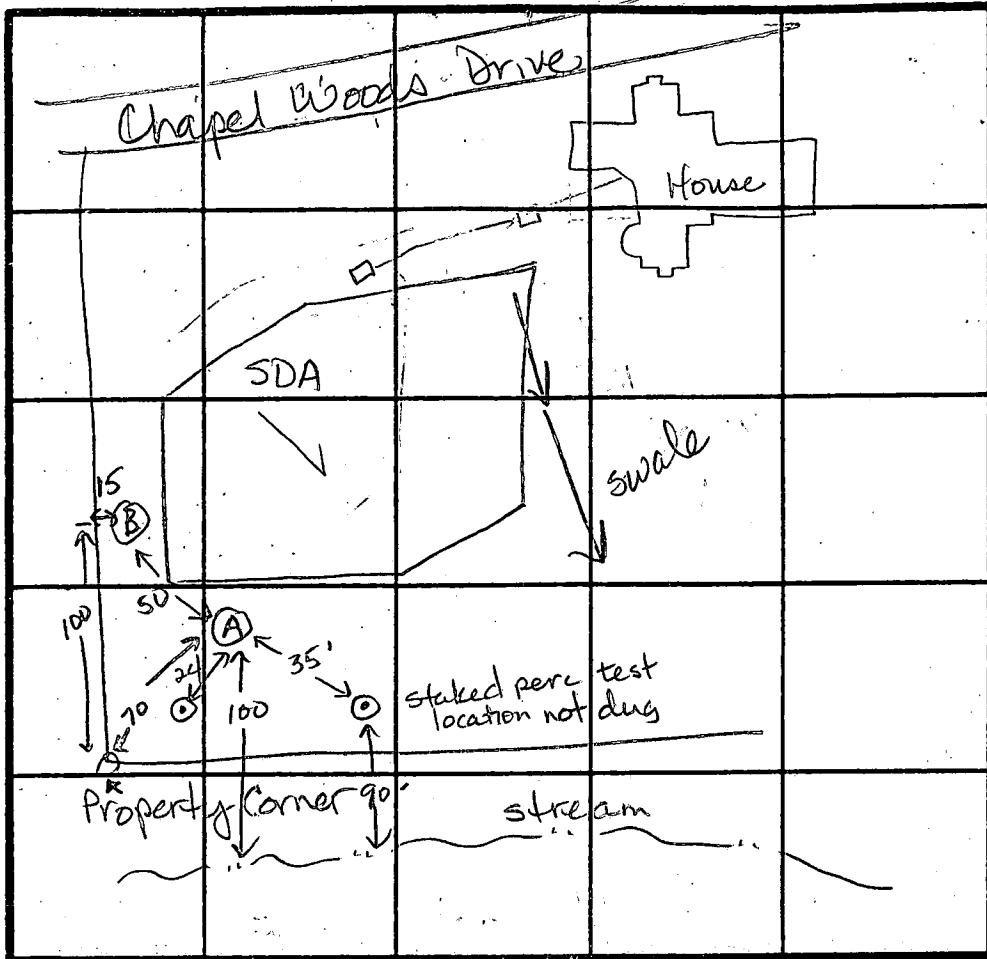 Chapel Woods Drive
House
SDA
swale
15
B
50
100
A
24
35'
70
100
staked perc test
location not dug
Property Corner
90'
stream